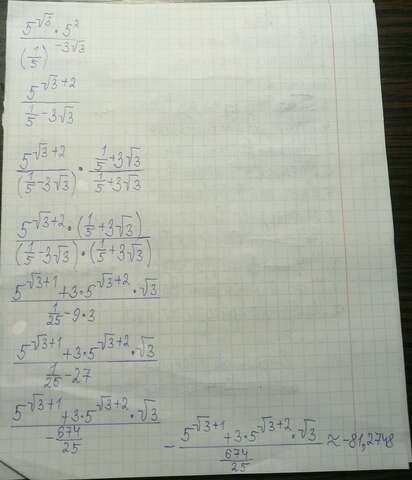 5^√3 · 5^2
(1/5)^-3√3
5^√3+2
1/5 - 3√3
5^√3+2 · 1/5 + 3√3
(1/5 - 3√3) 1/5 + 3√3
5^√3+2 · (1/5 + 3√3)
(1/5 - 3√3) · (1/5 + 3√3)
5^√3+1 + 3·5^√3+2 · √3
1/25 - 9·3
5^√3+1 + 3·5^√3+2 · √3
1/25 - 27
5^√3+1 + 3·5^√3+2 · √3
- 674/25
- 5^√3+1 + 3·5^√3+2 · √3 ≈ -81,2748
674/25